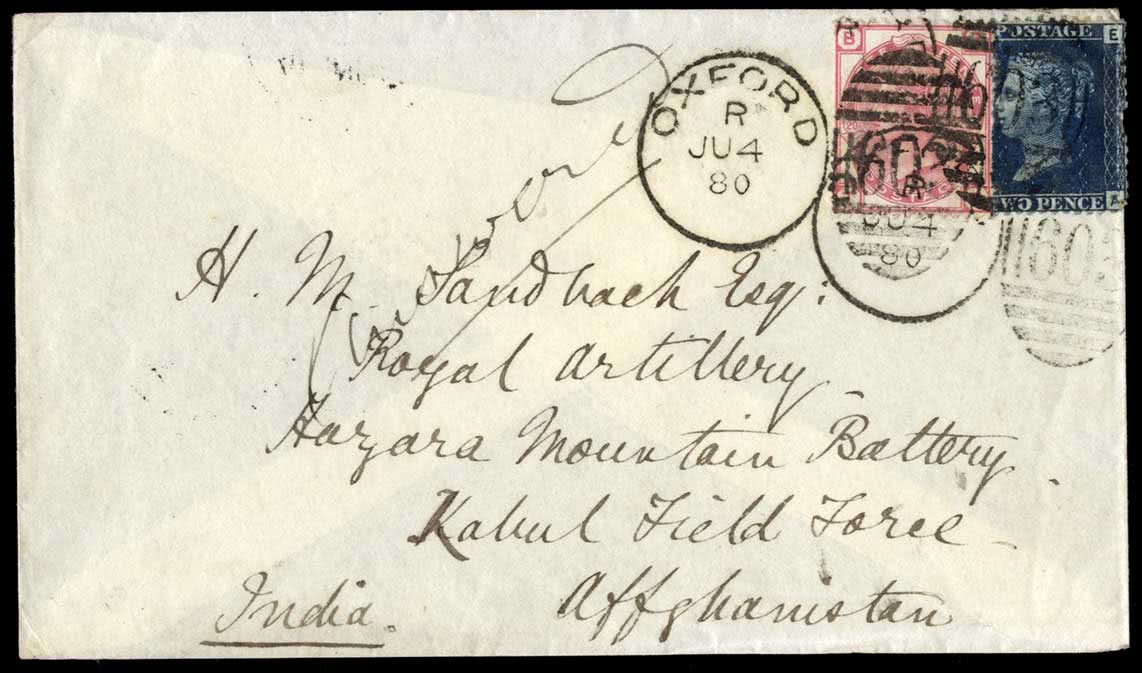 OXFORD
R
JU 4
80
B
POSTAGE
E
TWO PENCE
A
603
R
JU 4
80
603
H. M. Sandbach Esq:
Royal Artillery
Hazara Mountain Battery
Kabul Field Force
Affghanistan
India.